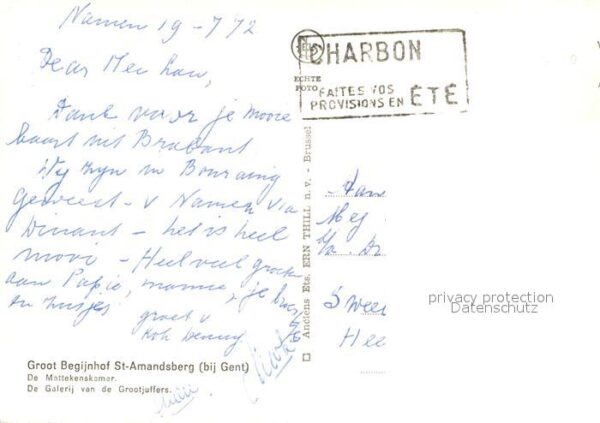 Namen 19-7 72
Dear
Dank voor je mooie
kaart uit Brabant
Wij zijn in
geweest - v Namen via
Dinant - het is heel
mooi - Heel veel groeten
aan Papie, mamie, je broer
en zusjes
groet v
CHARBON
FAITES VOS
PROVISIONS EN ÉTÉ
ECHTE
FOTO
Anciens Ets. ERN THILL n.v. - Brussel
Aan
Mej
Swee
Hee
privacy protection
Datenschutz
Groot Begijnhof St-Amandsberg (bij Gent)
De Mattekenskamer.
De Galerij van de Grootjuffers.